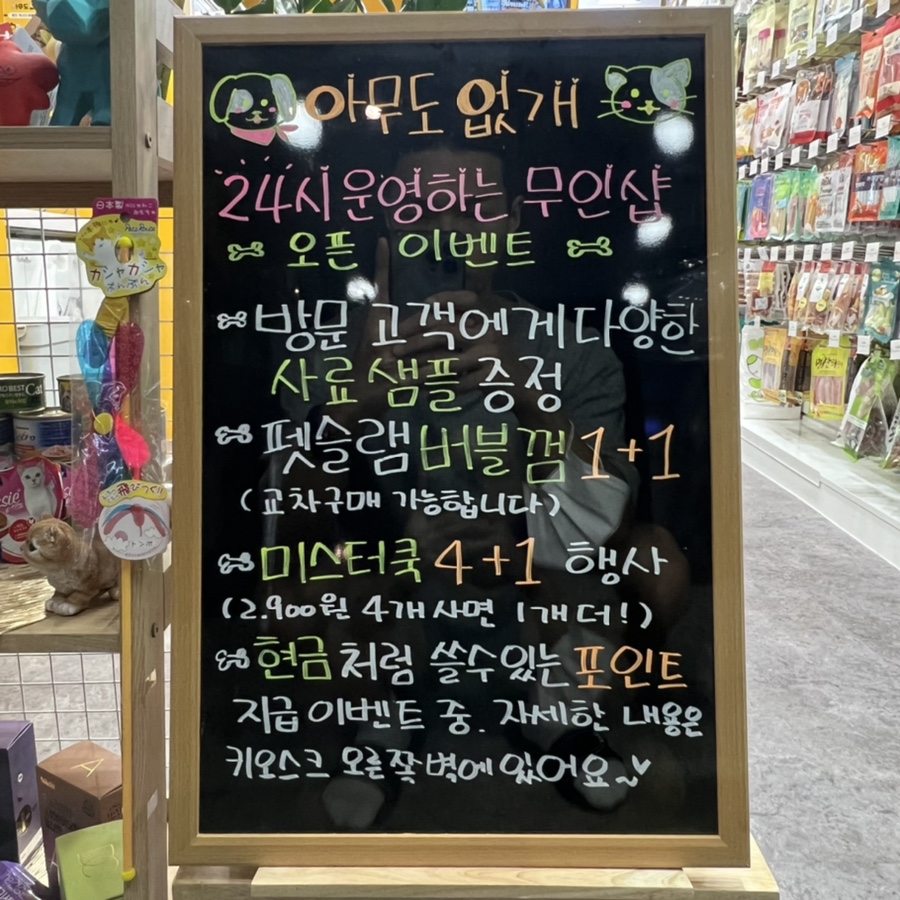 아무도 없개
24시 운영하는 무인샵
오픈 이벤트
방문 고객에게 다양한
사료 샘플 증정
펫슬램 버블껌 1+1
(교차구매 가능합니다)
미스터쿡 4+1 행사
(2.900원 4개 사면 1개 더!)
현금처럼 쓸수있는 포인트
지급 이벤트 중. 자세한 내용은
키오스크 오른쪽 벽에 있어요~♥
日本製
PetzRoute
ガシャガシャ
飛びつく!!
BEST Cat
A